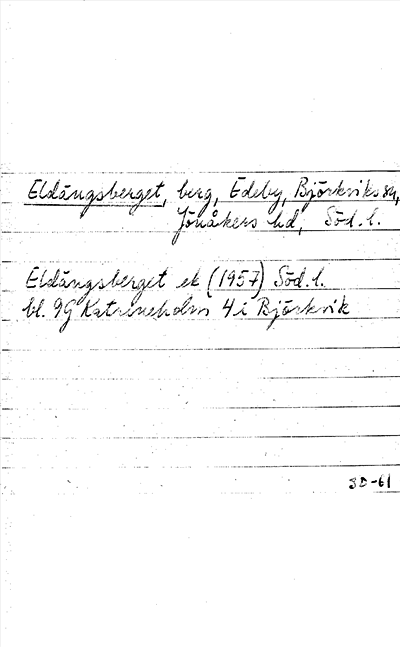 Eldängsberget, berg, Edeby, Björkviks sn,
Jönåkers hd, Söd. l.
Eldängsberget ek (1957) Söd. l.
bl. 9G Katrineholm 4 i Björkvik
3D-61